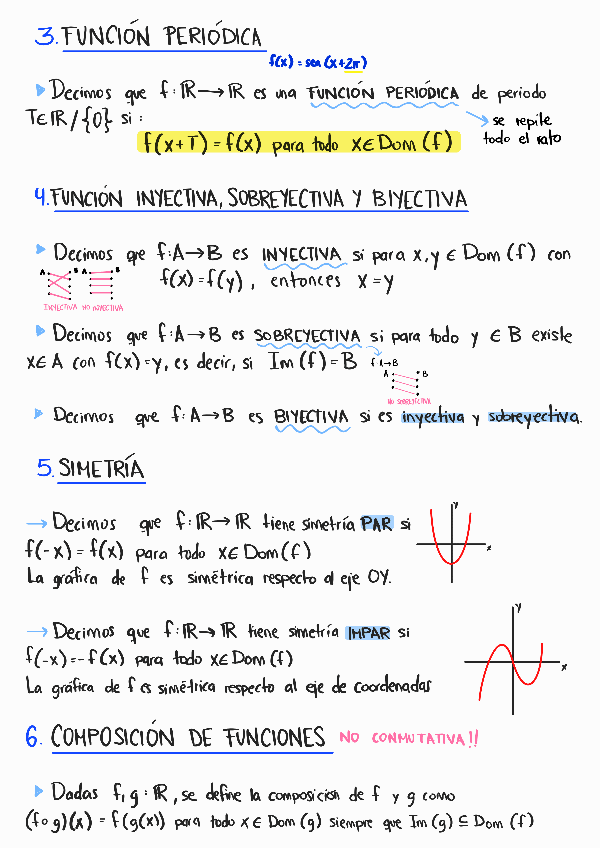 3. FUNCIÓN PERIÓDICA
f(x) = sen (x+2π)
Decimos que f: ℝ → ℝ es una FUNCIÓN PERIÓDICA de periodo
T∈ℝ/{0} si:
se repite
todo el rato
f(x+T) = f(x) para todo x∈Dom(f)
4. FUNCIÓN INYECTIVA, SOBREYECTIVA Y BIYECTIVA
Decimos que f: A→B es INYECTIVA si para x,y ∈ Dom(f) con
f(x) = f(y), entonces x = y
A B A B
INYECTIVA NO INYECTIVA
Decimos que f: A→B es SOBREYECTIVA si para todo y ∈ B existe
x∈A con f(x)=y, es decir, si Im(f) = B
f: A→B
A B
NO SOBREYECTIVA
Decimos que f: A→B es BIYECTIVA si es inyectiva y sobreyectiva.
5. SIMETRÍA
→ Decimos que f: ℝ → ℝ tiene simetría PAR si
f(-x) = f(x) para todo x∈Dom(f)
La gráfica de f es simétrica respecto al eje OY.
y
x
→ Decimos que f: ℝ → ℝ tiene simetría IMPAR si
f(-x) = -f(x) para todo x∈Dom(f)
La gráfica de f es simétrica respecto al eje de coordenadas
y
x
6. COMPOSICIÓN DE FUNCIONES NO CONMUTATIVA!!
Dadas f, g: ℝ, se define la composición de f y g como
(f∘g)(x) = f(g(x)) para todo x∈Dom(g) siempre que Im(g) ⊆ Dom(f)